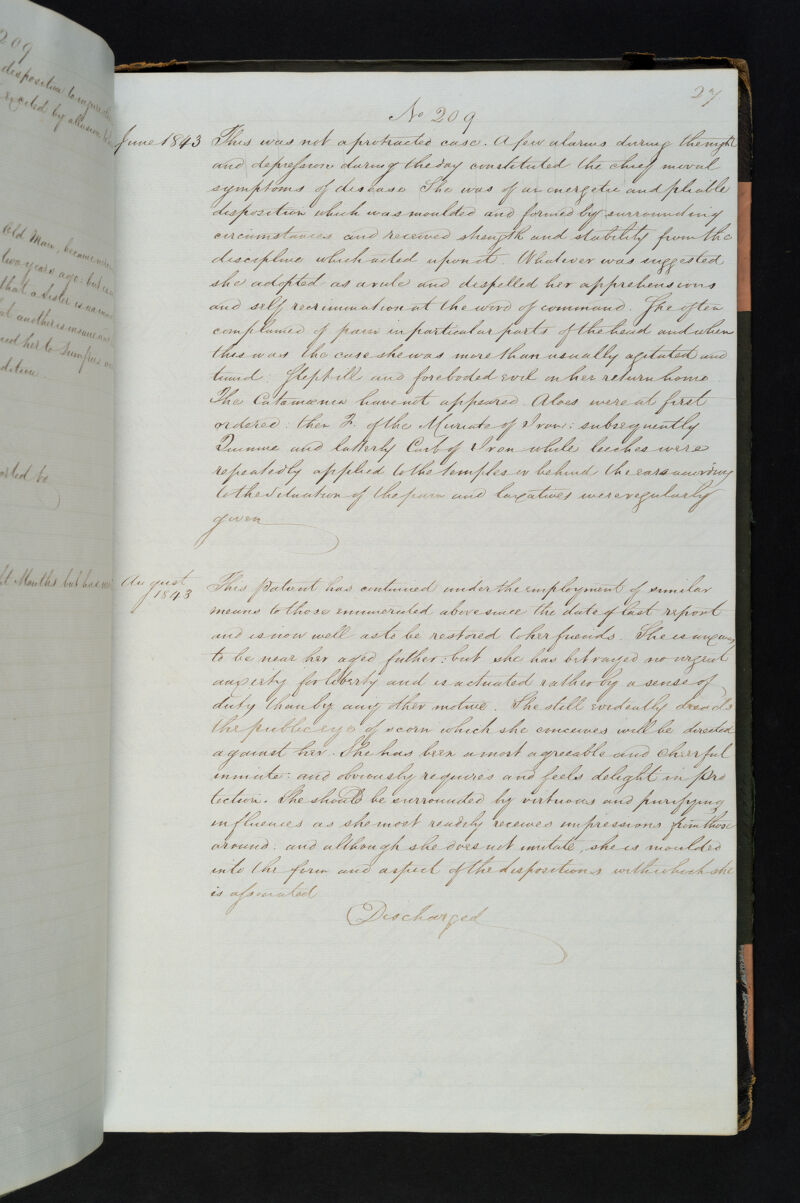 209
disposition to injure
excited by allusion
Old Man, became
two years ago: but
that a sister is
that another is insane
her to Dumfries
dition
27
No 209
June 1843 This was not a protracted case. A few alarms during the night
and depression during the day constituted the chief moral
symptoms of disease She was of an energetic and pliable
disposition which was moulded and formed by surrounding
circumstances and received strength and stability from the
discipline which acted upon it. Whatever was suggested
she adopted as a rule and dispelled her apprehensions
and self recrimination at the word of command. She often
complained of pain in particular parts of the head and when
this was the case she was more than usually agitated and
timid: Slept ill and foreboded evil on her return home
The Catamenia have not appeared. Aloes were at first
ordered: then T. of the Muriate of Iron: subsequently
Quinine and latterly Carb of Iron while leeches were
repeatedly applied to the temples or behind the ears according
to the situation of the pain and laxatives were regularly
given
August
1843
This patient has continued under the employment of similar
means to those enumerated above since the date of last report
and is now well as to be restored to her friends. She is anxious
to be near her aged father: but she has betrayed no urgent
anxiety for liberty and is actuated rather by a sense of
duty than by any other motive. She still evidently dreads
the public eye of scorn which she conceives will be directed
against her. She has been a most agreeable and cheerful
inmate: and obviously requires and feels delight in pro
tection. She should be surrounded by virtuous and purifying
influences as she most readily receives impressions from those
around: and although she does not imitate, she is moulded
into the form and aspect of the dispositions with which she
is associated
Discharged
Months but has